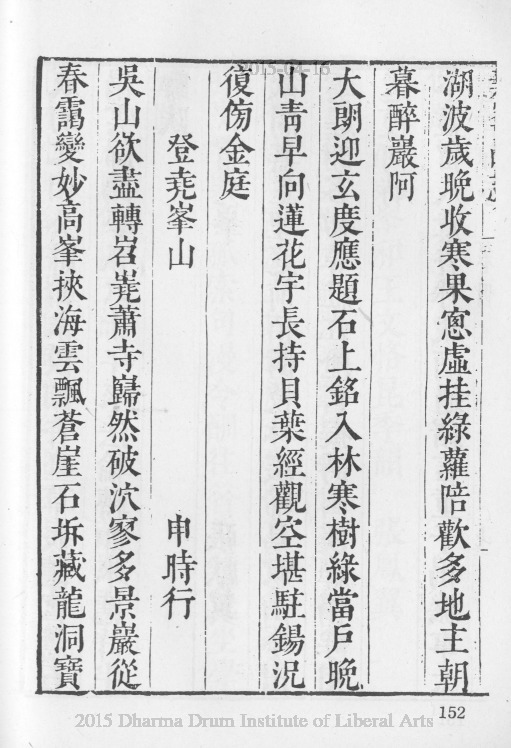 2015-04-16
湖波歲晚收寒果窓虛挂綠蘿陪歡多地主朝
暮醉巖阿
大朗迎玄度應題石上銘入林寒樹綠當戶晚
山青早向蓮花宇長持貝葉經觀空堪駐錫況
復傍金庭
登堯峯山 申時行
吳山欲盡轉岧嶤蕭寺巋然破泬寥多景巖從
春靄變妙高峯挾海雲飄蒼崖石坼藏龍洞寶
152
2015 Dharma Drum Institute of Liberal Arts